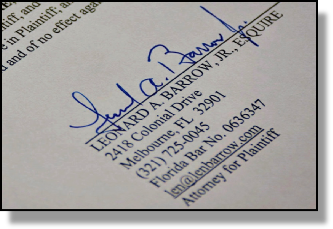 and
Plaintiff, and
e in Plaintiff, a
d and of no effect agai
LEONARD A. BARROW, JR., ESQUIRE
2418 Colonial Drive
Melbourne, FL 32901
(321) 725-0045
Florida Bar No. 0636347
len@lenbarrow.com
Attorney for Plaintiff